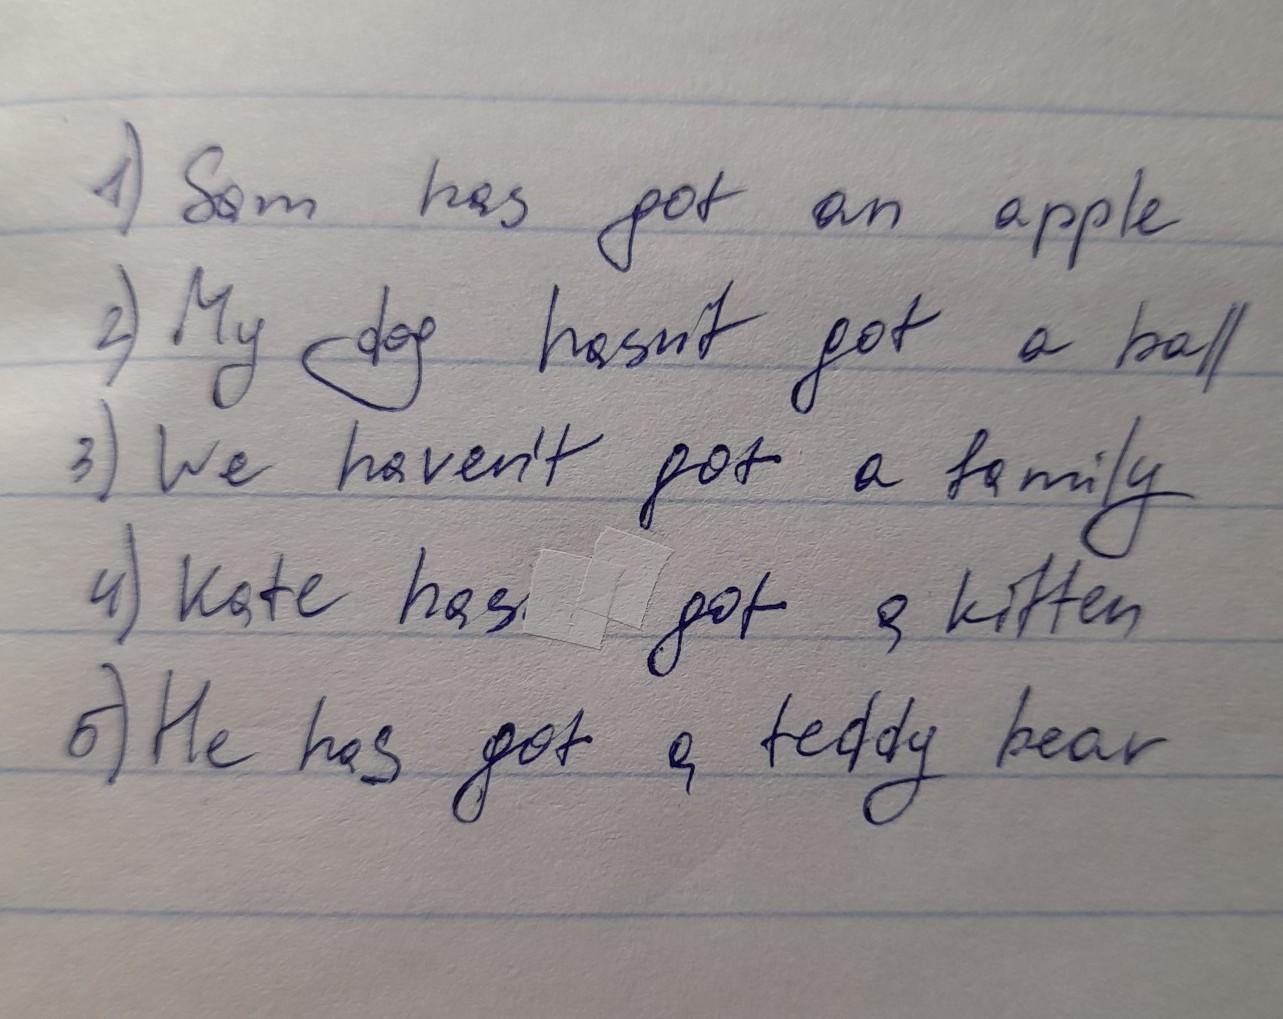 1) Sam has got an apple
2) My dog hasn't got a ball
3) We haven't got a family
4) Kate has got a kitten
5) He has got a teddy bear